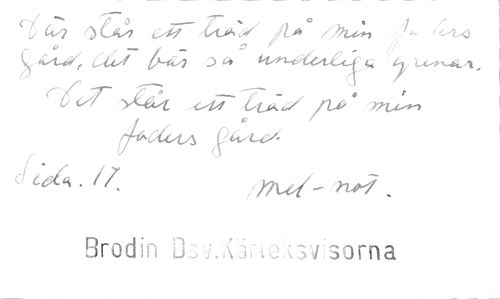 Där står ett träd på min faders
gård, det bär så underliga grenar.
Det står ett träd på min
faders gård.
Sida. 17.
mel-not.
Brodin Dsv. Kärleksvisorna